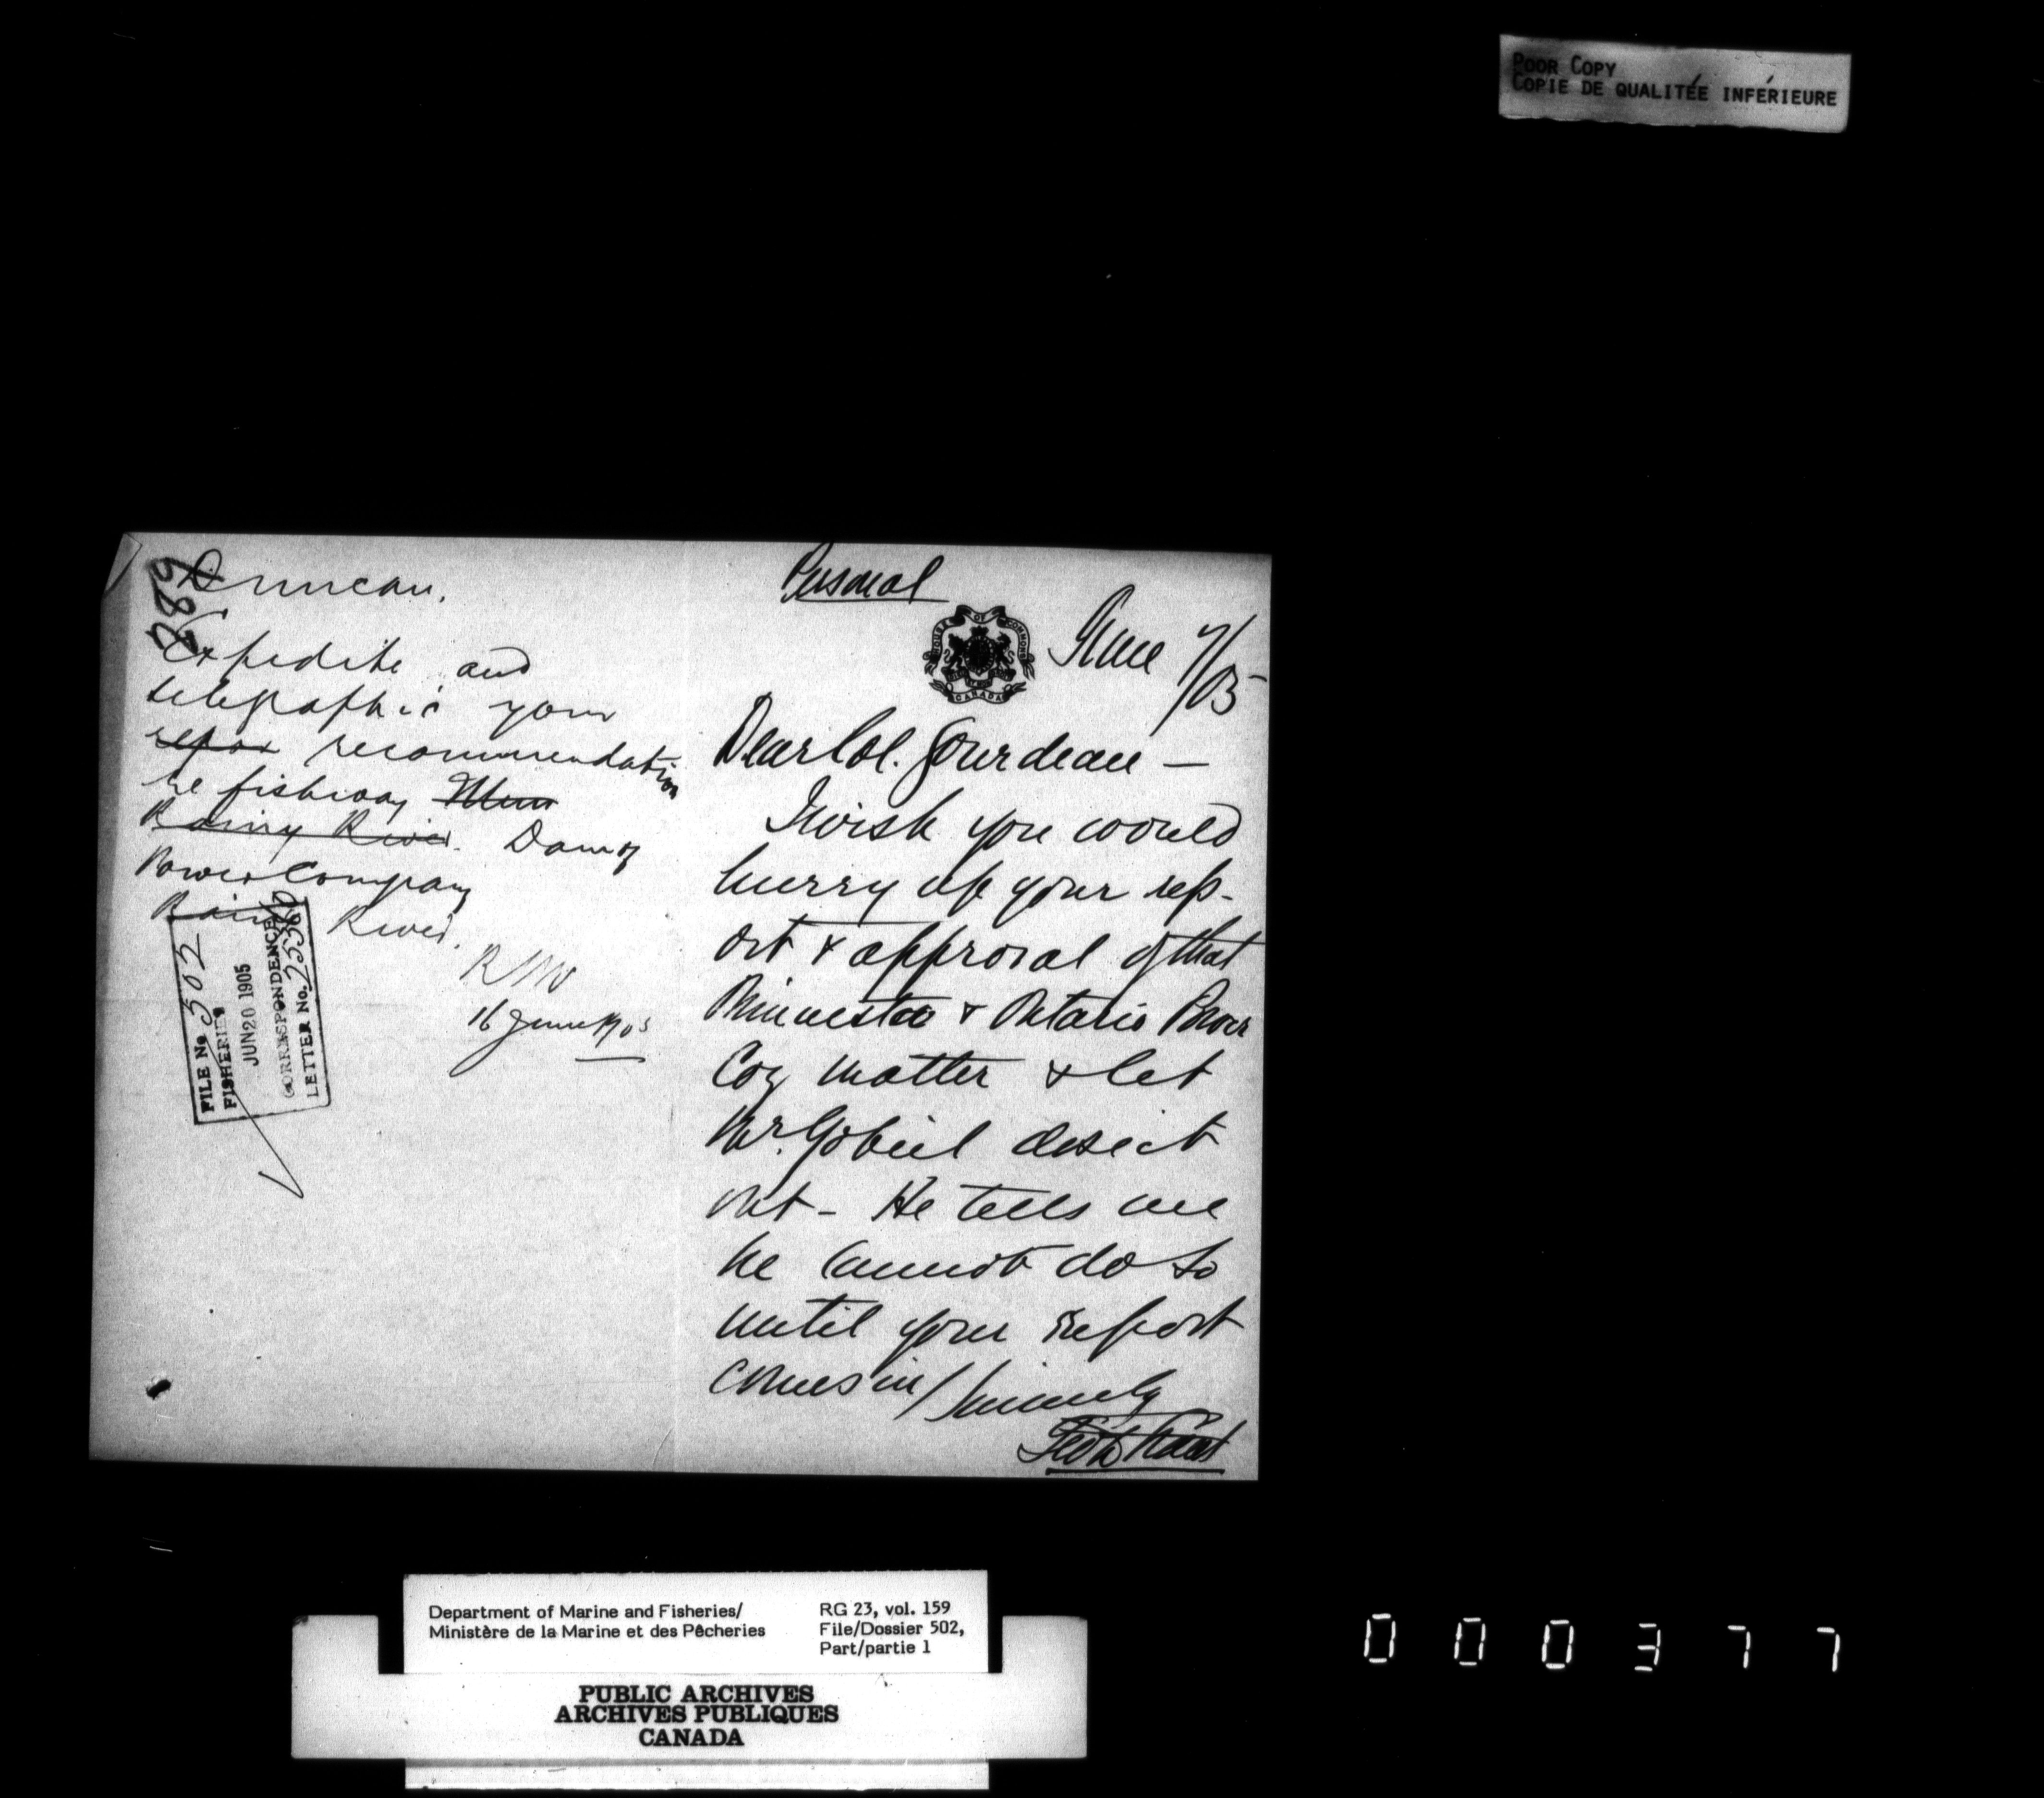 POOR COPY
COPIE DE QUALITÉE INFÉRIEURE
287
Duncan.
Expedite and
telegraphic your
repor recommendation
re fishway
Rainy River. Dam of
Power Company
Rainy River.
RNV
16 June 1905
FILE No 502
FISHERIES
JUN 20 1905
CORRESPONDENCE
LETTER No.
Personal
HOUSE OF COMMONS
CANADA
June 7/05
Dear Col. Gourdeau —
I wish you would
hurry up your rep-
ort & approval of that
Minnesota & Ontario Power
Coy matter & let
Mr. Gobeil close it
out - He tells me
he cannot do so
until your report
comes in / Sincerely
Department of Marine and Fisheries/
Ministère de la Marine et des Pêcheries
RG 23, vol. 159
File/Dossier 502,
Part/partie 1
PUBLIC ARCHIVES
ARCHIVES PUBLIQUES
CANADA
000377